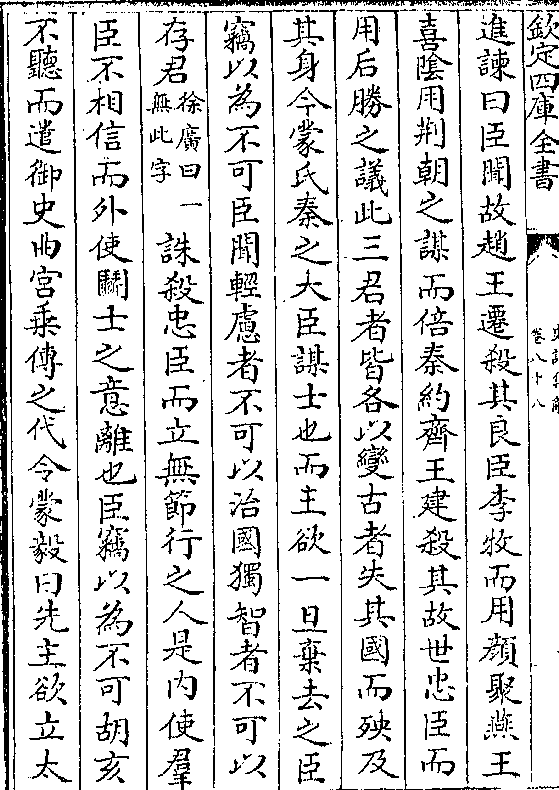 欽定四庫全書
卷八十八
進諫曰臣聞故趙王遷殺其良臣李牧而用顔聚燕王
喜陰用荆軻之謀而倍秦約齊王建殺其故世忠臣而
用后勝之議此三君者皆各以變古者失其國而殃及
其身今蒙氏秦之大臣謀士也而主欲一旦棄去之臣
竊以為不可臣聞輕慮者不可以治國獨智者不可以
存君徐廣曰一無此字誅殺忠臣而立無節行之人是内使羣
臣不相信而外使鬭士之意離也臣竊以為不可胡亥
不聽而遣御史曲宫乘傳之代令蒙毅曰先主欲立太